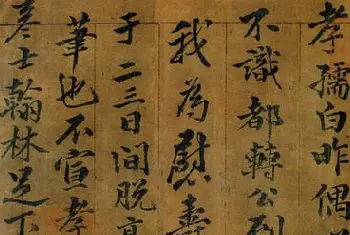 孝孺白昨偶
不識都轉公到
我為慰壽
于二三日間脫
筆也不宣孝
彥士翰林足下